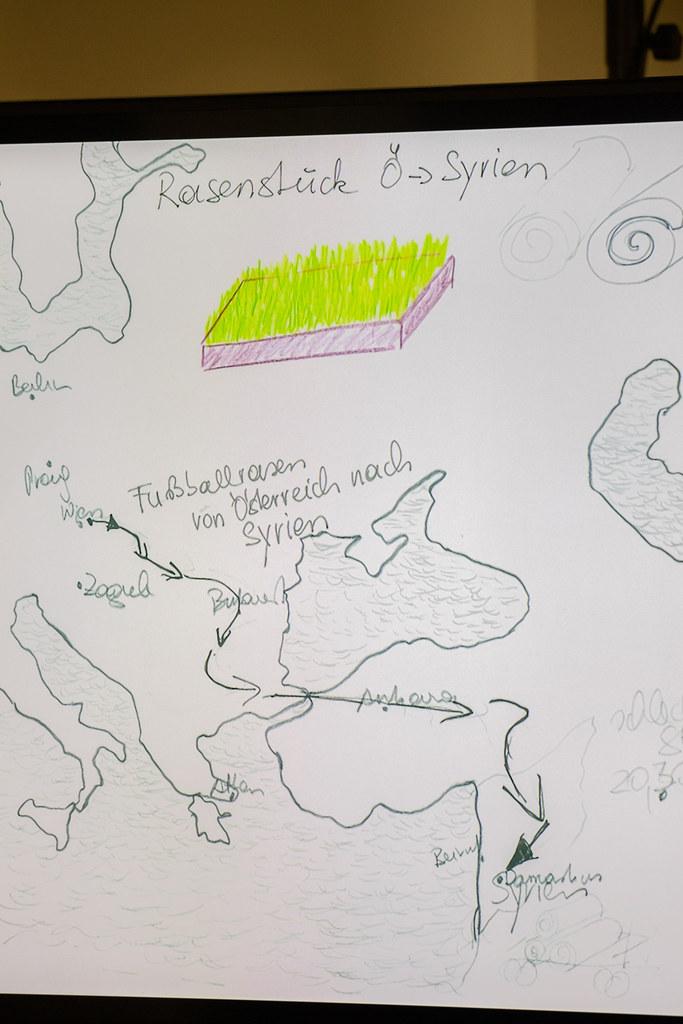 Rasenstück Ö -> Syrien
Berlin
Prag
Fußballrasen
von Österreich nach
Syrien
Wien
Zagreb
Bukarest
Ankara
Athen
Beirut
Damaskus
Syrien